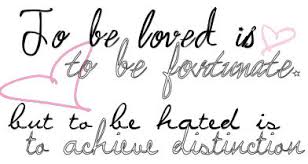 To be loved is
to be fortunate.
but to be hated is
to achieve distinction